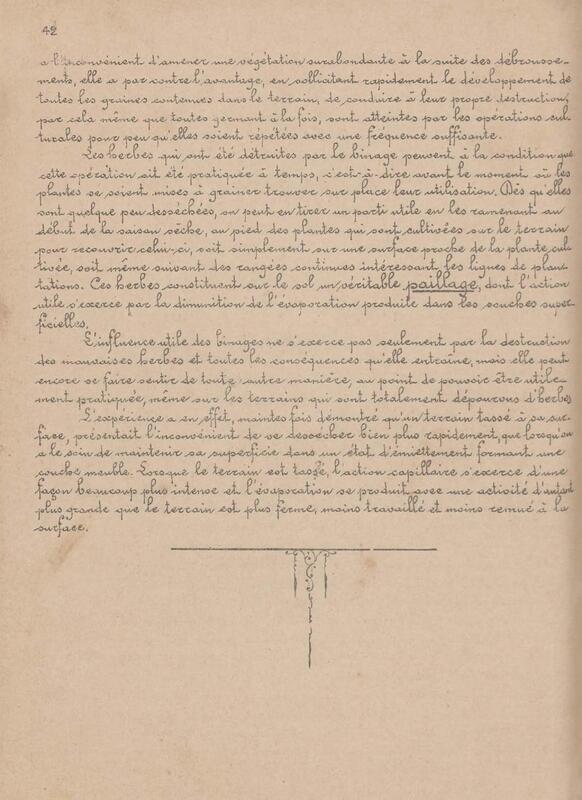 42
a l'inconvénient d'amener une végétation surabondante à la suite des débrousse-
ments, elle a par contre l'avantage, en sollicitant rapidement le développement de
toutes les graines contenues dans le terrain, de conduire à leur propre destruction,
par cela même que toutes germant à la fois, sont atteintes par les opérations cul-
turales pour peu qu'elles soient répétées avec une fréquence suffisante.
Les herbes qui ont été détruites par le binage peuvent à la condition que
cette opération ait été pratiquée à temps, c'est-à-dire avant le moment où les
plantes se soient mises à grainer trouver sur place leur utilisation. Dès qu'elles
sont quelque peu desséchées, on peut en tirer un parti utile en les ramenant au
début de la saison sèche, au pied des plantes qui sont cultivées sur le terrain
pour recouvrir celui-ci, soit simplement sur une surface proche de la plante cul-
tivée, soit même suivant des rangées continues intéressant les lignes de plan-
tations. Ces herbes constituent sur le sol un véritable paillage, dont l'action
utile s'exerce par la diminution de l'évaporation produite dans les couches super-
ficielles.
L'influence utile des binages ne s'exerce pas seulement par la destruction
des mauvaises herbes et toutes les conséquences qu'elle entraîne, mais elle peut
encore se faire sentir de toute autre manière, au point de pouvoir être utile-
ment pratiquée, même sur les terrains qui sont totalement dépourvus d'herbes
L'expérience a en effet, maintes fois démontré qu'un terrain tassé à sa sur-
face, présentait l'inconvénient de se dessécher bien plus rapidement, que lorsqu'on
a le soin de maintenir sa superficie dans un état d'émiettement formant une
couche meuble. Lorsque le terrain est tassé, l'action capillaire s'exerce d'une
façon beaucoup plus intense et l'évaporation se produit avec une activité d'autant
plus grande que le terrain est plus ferme, moins travaillé et moins remué à la
surface.